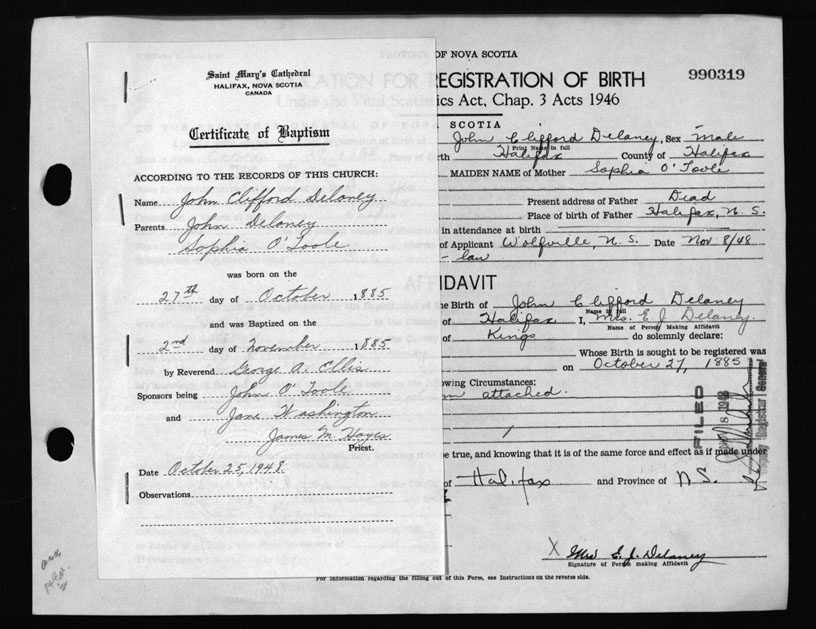 Saint Mary's Cathedral
HALIFAX, NOVA SCOTIA
CANADA
Certificate of Baptism
ACCORDING TO THE RECORDS OF THIS CHURCH:
Name John Clifford Delaney
Parents John Delaney
Sophia O'Toole
was born on the
27th day of October 1885
and was Baptized on the
2nd day of November 1885
by Reverend George A. Ellis
Sponsors being John O'Toole
and Jane Washington
James M. Hayes
Priest.
Date October 25, 1948
Observations
OF NOVA SCOTIA
REGISTRATION OF BIRTH
990319
ics Act, Chap. 3 Acts 1946
SCOTIA
John Clifford Delaney, Sex Male
Print Name in full
irth Halifax County of Halifax
MAIDEN NAME of Mother Sophia O'Toole
Present address of Father Dead
Place of birth of Father Halifax, N.S.
in attendance at birth
of Applicant Wolfville, N.S. Date Nov 8/48
- law
AFFIDAVIT
he Birth of John Clifford Delaney
Name in full
of Halifax I, Mrs. E J Delaney.
Name of Person Making Affidavit
of Kings do solemnly declare:
Whose Birth is sought to be registered was
on October 27, 1885
owing Circumstances:
attached.
FILED
Registrar General
be true, and knowing that it is of the same force and effect as if made under
of Halifax and Province of N.S.
X Mrs E. J. Delaney
Signature of Person making Affidavit
For information regarding the filling out of this Form, see Instructions on the reverse side.